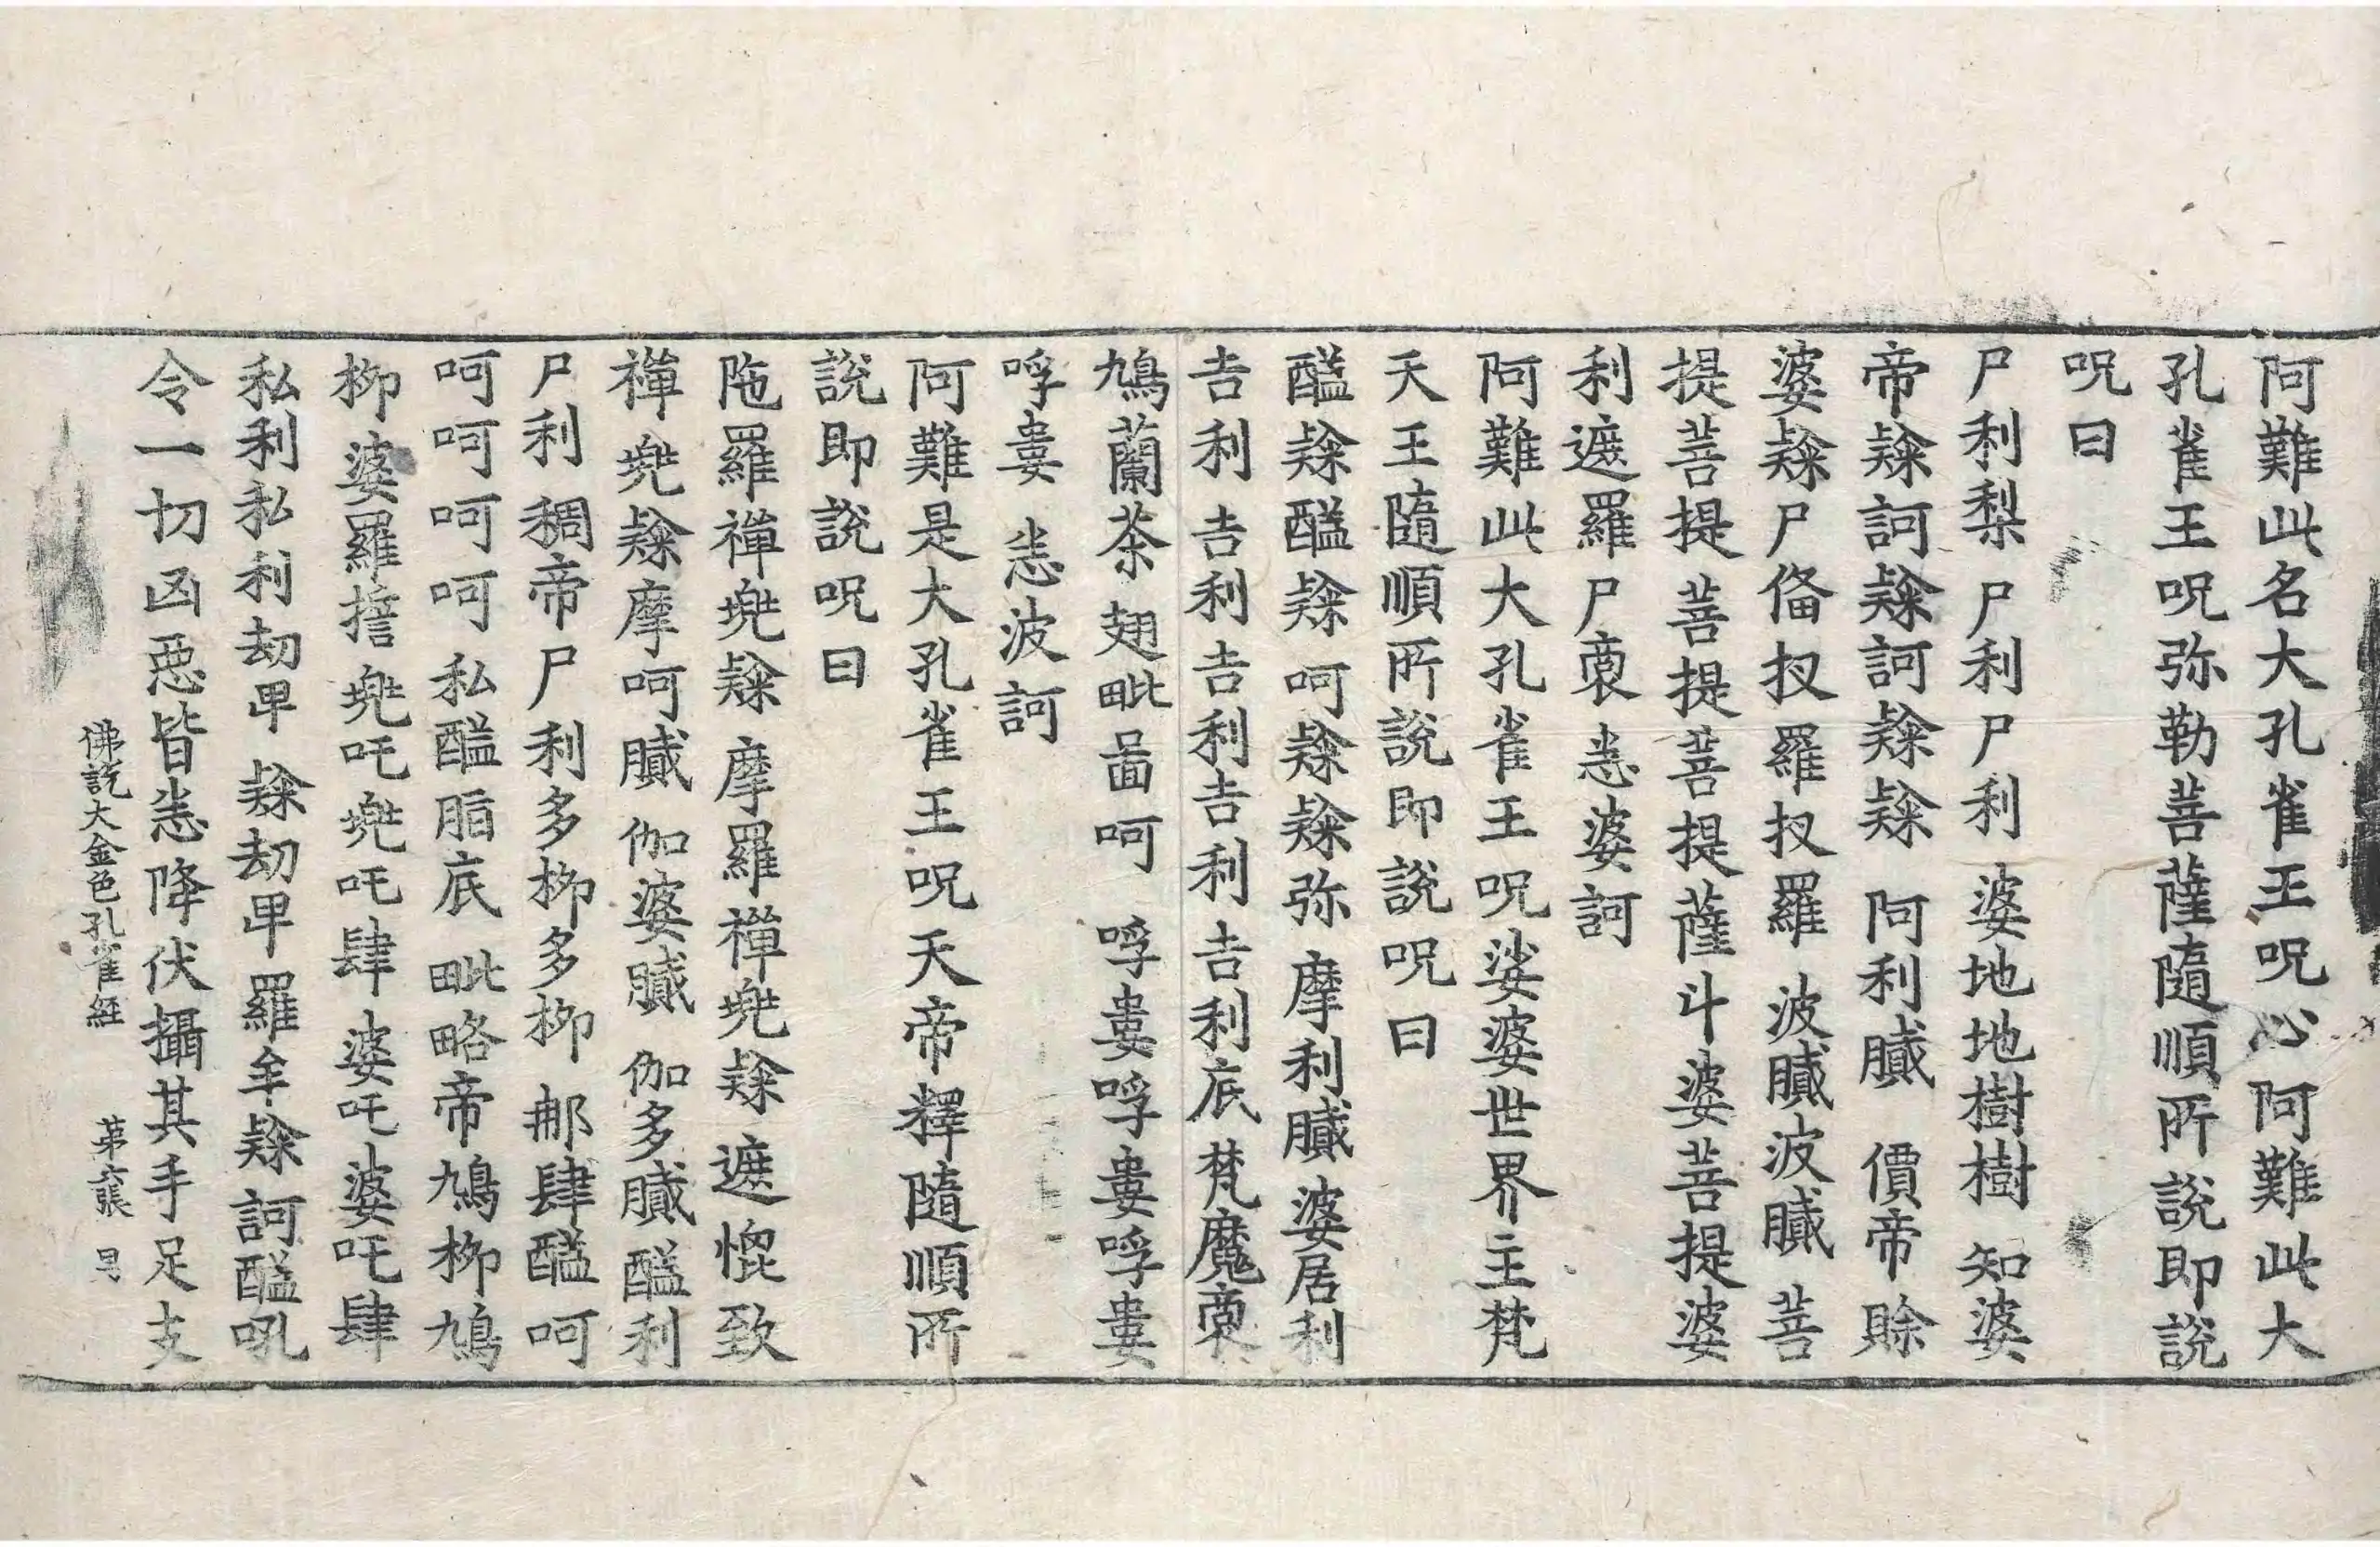 阿難此名大孔雀王呪心阿難此大
孔雀王呪弥勒菩薩隨順所說即說
呪曰
尸利梨 尸利尸利 婆地地樹樹 知婆
帝𨽻訶𨽻訶𨽻𨽻 阿利膩 價帝 賒
婆𨽻尸俻扠羅扠羅 波膩波膩 菩
提菩提菩提菩提薩斗婆菩提婆
利遮羅尸裔 恙婆訶
阿難此大孔雀王呪娑婆世界主梵
天王隨順所說即說呪曰
醯𨽻醯𨽻 呵𨽻𨽻弥 摩利膩 婆居利
吉利吉利吉利吉利吉利底梵魔裔
鳩蘭荼翅毗啚呵 呼婁呼婁呼婁
呼婁 恙波訶
阿難是大孔雀王呪天帝釋隨順所
說即說呪曰
陁羅禪兠𨽻 摩羅禪兠𨽻 遮愡致
禪兠𨽻摩呵膩 伽婆膩 伽多膩醯利
尸利稠帝尸利多桞多桞 那肆醯呵
呵呵呵呵私醯脂底 毗略帝鳩桞鳩
桞婆羅擔兠吒兠吒肆婆吒婆吒肆
私利私利劫畢𨽻劫畢羅牟𨽻訶醯吼
令一切凶惡皆恙降伏攝其手足支
佛說大金色孔雀經 苐六張